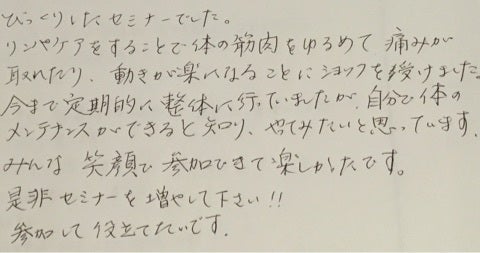 びっくりしたセミナーでした。
リンパケアをすることで体の筋肉をゆるめて 痛みが
取れたり、動きが楽になることにショックを受けました。
今まで定期的に整体に行っていましたが、自分で体の
メンテナンスができると知り、やってみたいと思っています。
みんな 笑顔で 参加できて楽しかったです。
是非セミナーを増やして下さい!!
参加して役立てたいです。